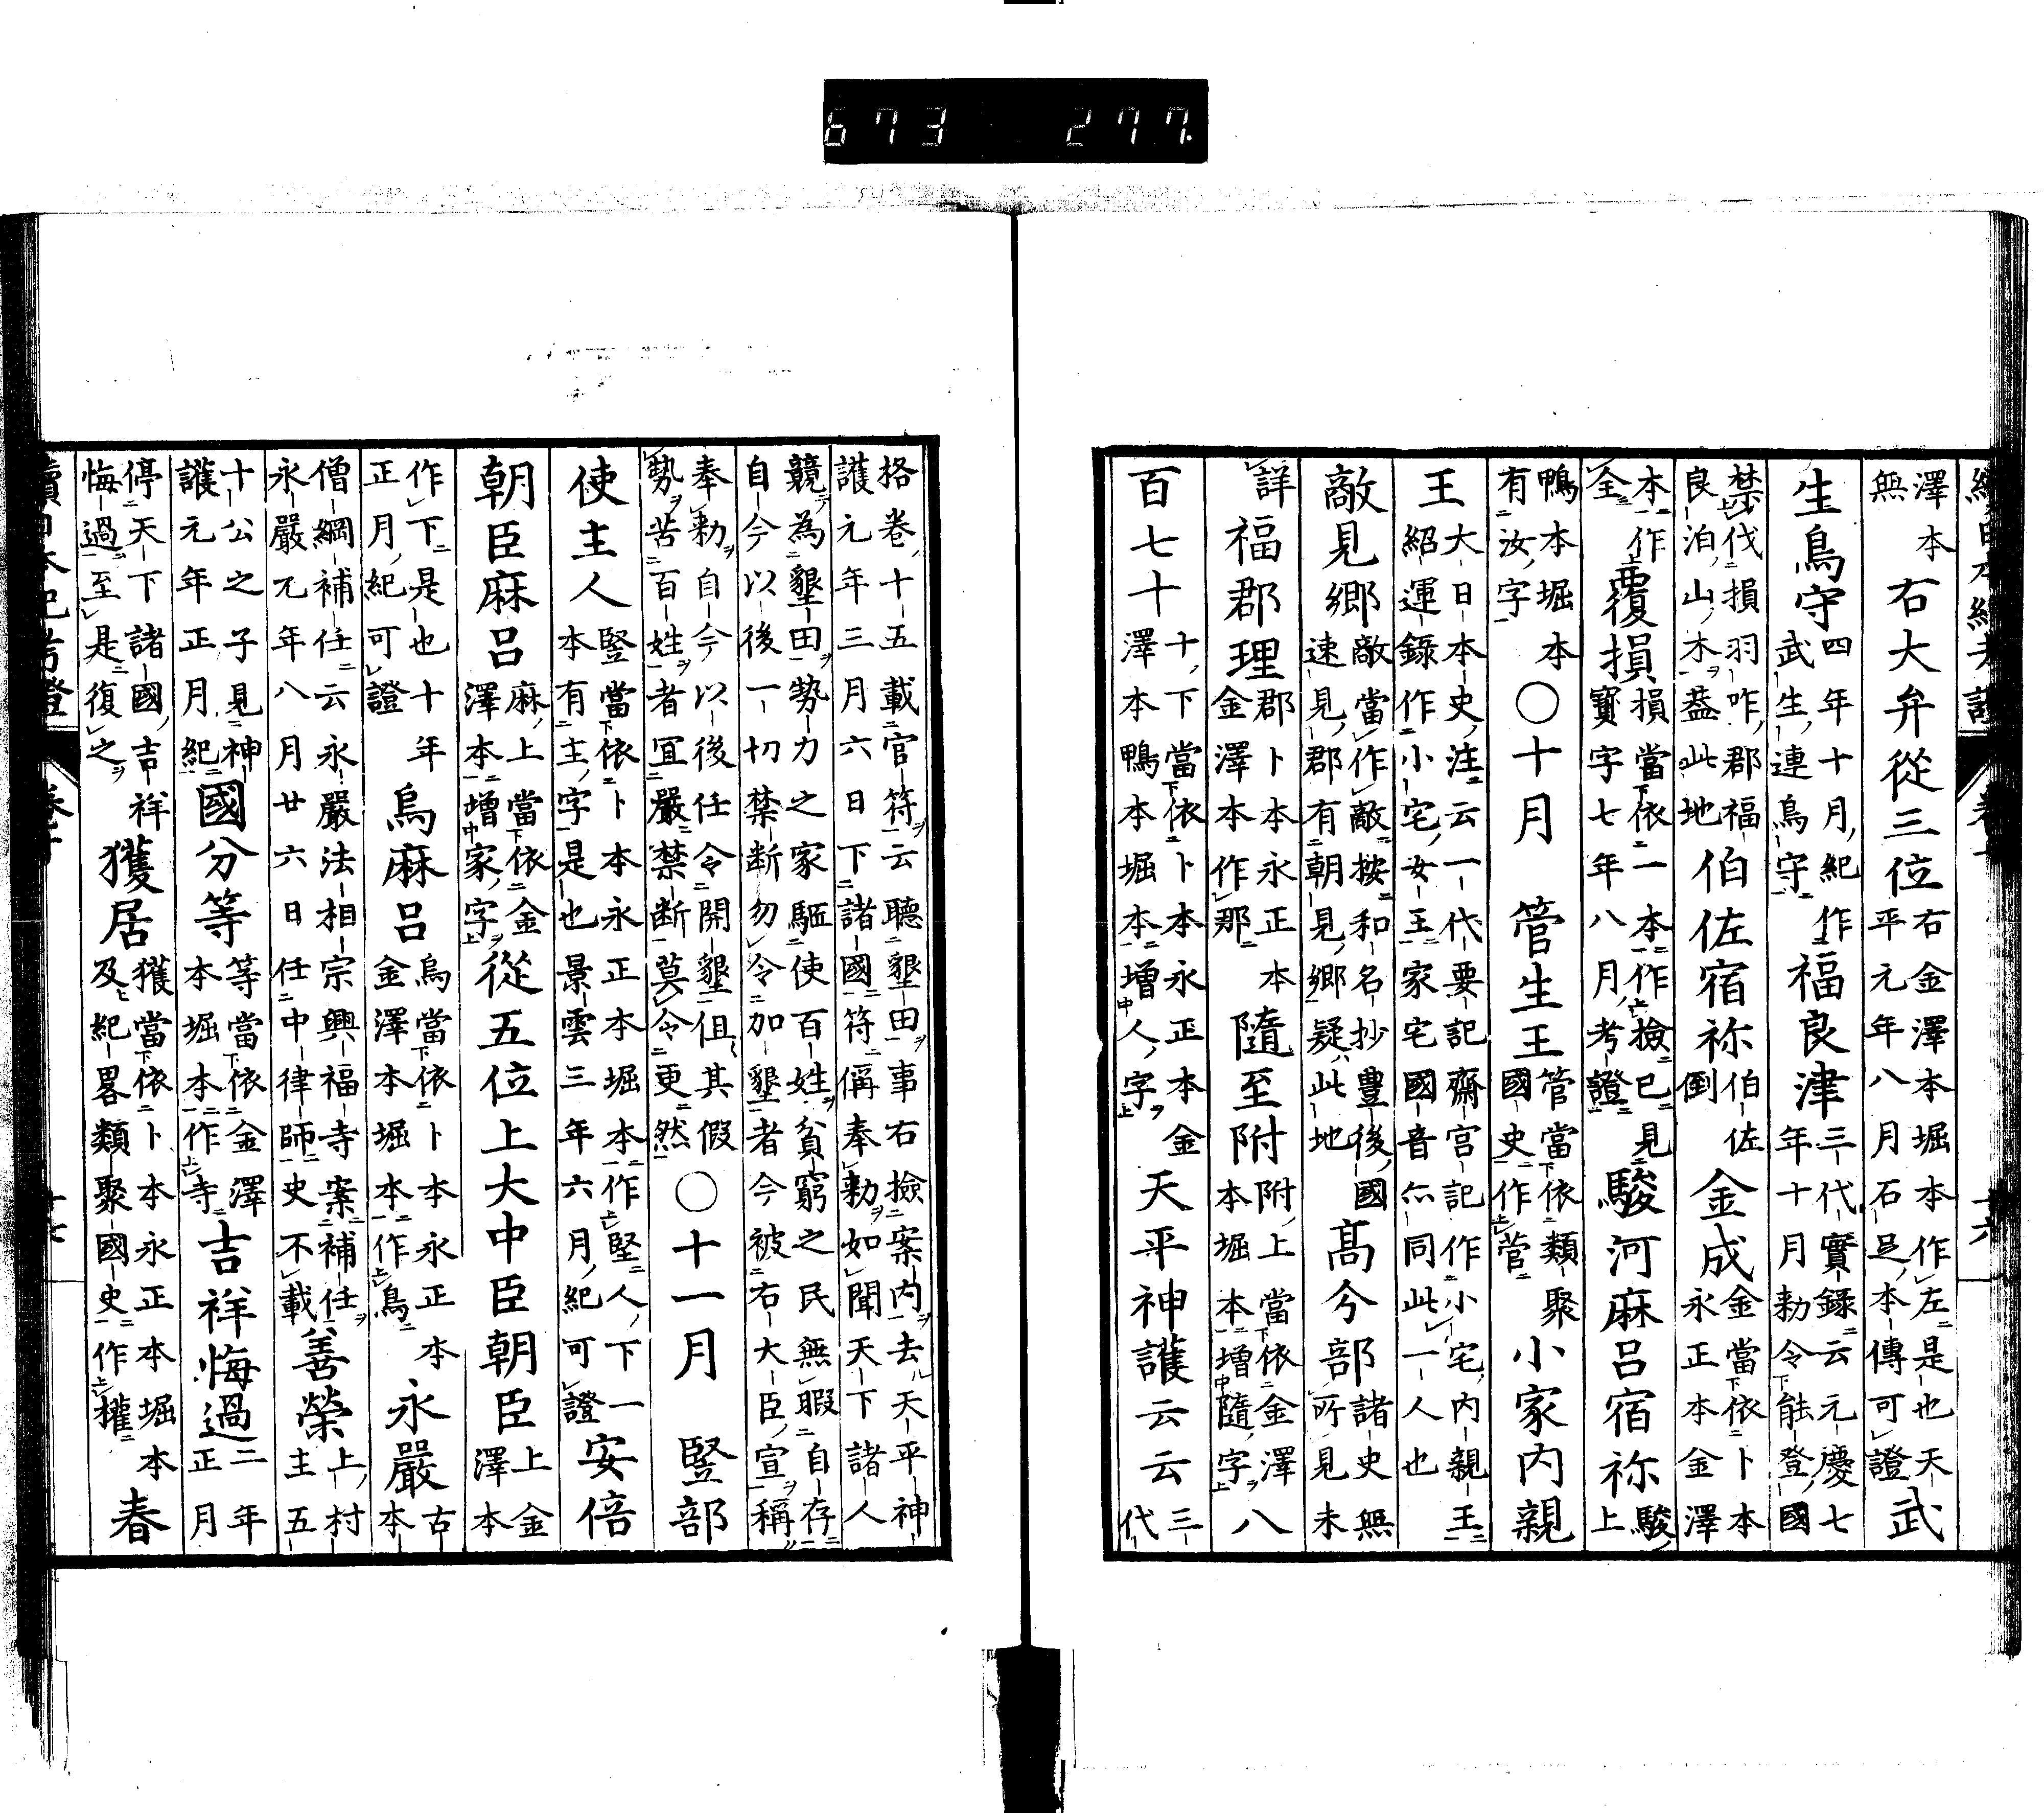 673 277.
澤本無右大弁從三位右金澤本堀本作左是也天平元年八月石足本傳可證武
生鳥守四年十月紀作武生連鳥守福良津三代實録云元慶七年十月勅令能登國
禁伐損羽咋郡福良泊山木葢此地伯佐宿祢伯佐倒金成金當依卜本永正本金澤
本作全覆損損當依一本作撿已見寳字七年八月考證駿河麻呂宿祢駿上
鴨本堀本有汝字〇十月管生王管當依類聚國史作菅小家内親
王大日本史注云一代要記齋宮記作小宅内親王紹運録作小宅女王家宅國音亦同此一人也
敵見郷敵當作敵按和名抄豊後國速見郡有朝見郷疑此地高今部諸史無所見未
詳福郡理郡卜本永正本金澤本作那隨至附附上當依金澤本堀本増隨字八
百七十十下當依卜本永正本金澤本鴨本堀本増人字天平神護云云三代
格卷十五載官符云聽墾田事右撿案内去天平神護元年三月六日下諸國符偁奉勅如聞天下諸人
競為墾田勢力之家駈使百姓貧窮之民無暇自存自今以後一切禁断勿令加墾者今被右大臣宣稱
奉勅自今以後任令開墾但其假勢苦百姓者宜嚴禁断莫令更然〇十一月竪部
使主人竪當依卜本永正本堀本作堅人下一本有主字是也景雲三年六月紀可證安倍
朝臣麻呂麻上當依金澤本増家字從五位上大中臣朝臣上金澤本
作下是也十年正月紀可證烏麻呂烏當依卜本永正本金澤本堀本作鳥永嚴古本
僧綱補任云永嚴法相宗興福寺案補任永嚴元年八月廿六日任中律師史不載善榮上村主五
十公之子見神護元年正月紀國分等等當依金澤本堀本作寺吉祥悔過二年正月
停天下諸國吉祥悔過至是復之獲居獲當依卜本永正本堀本及紀畧類聚國史作權春